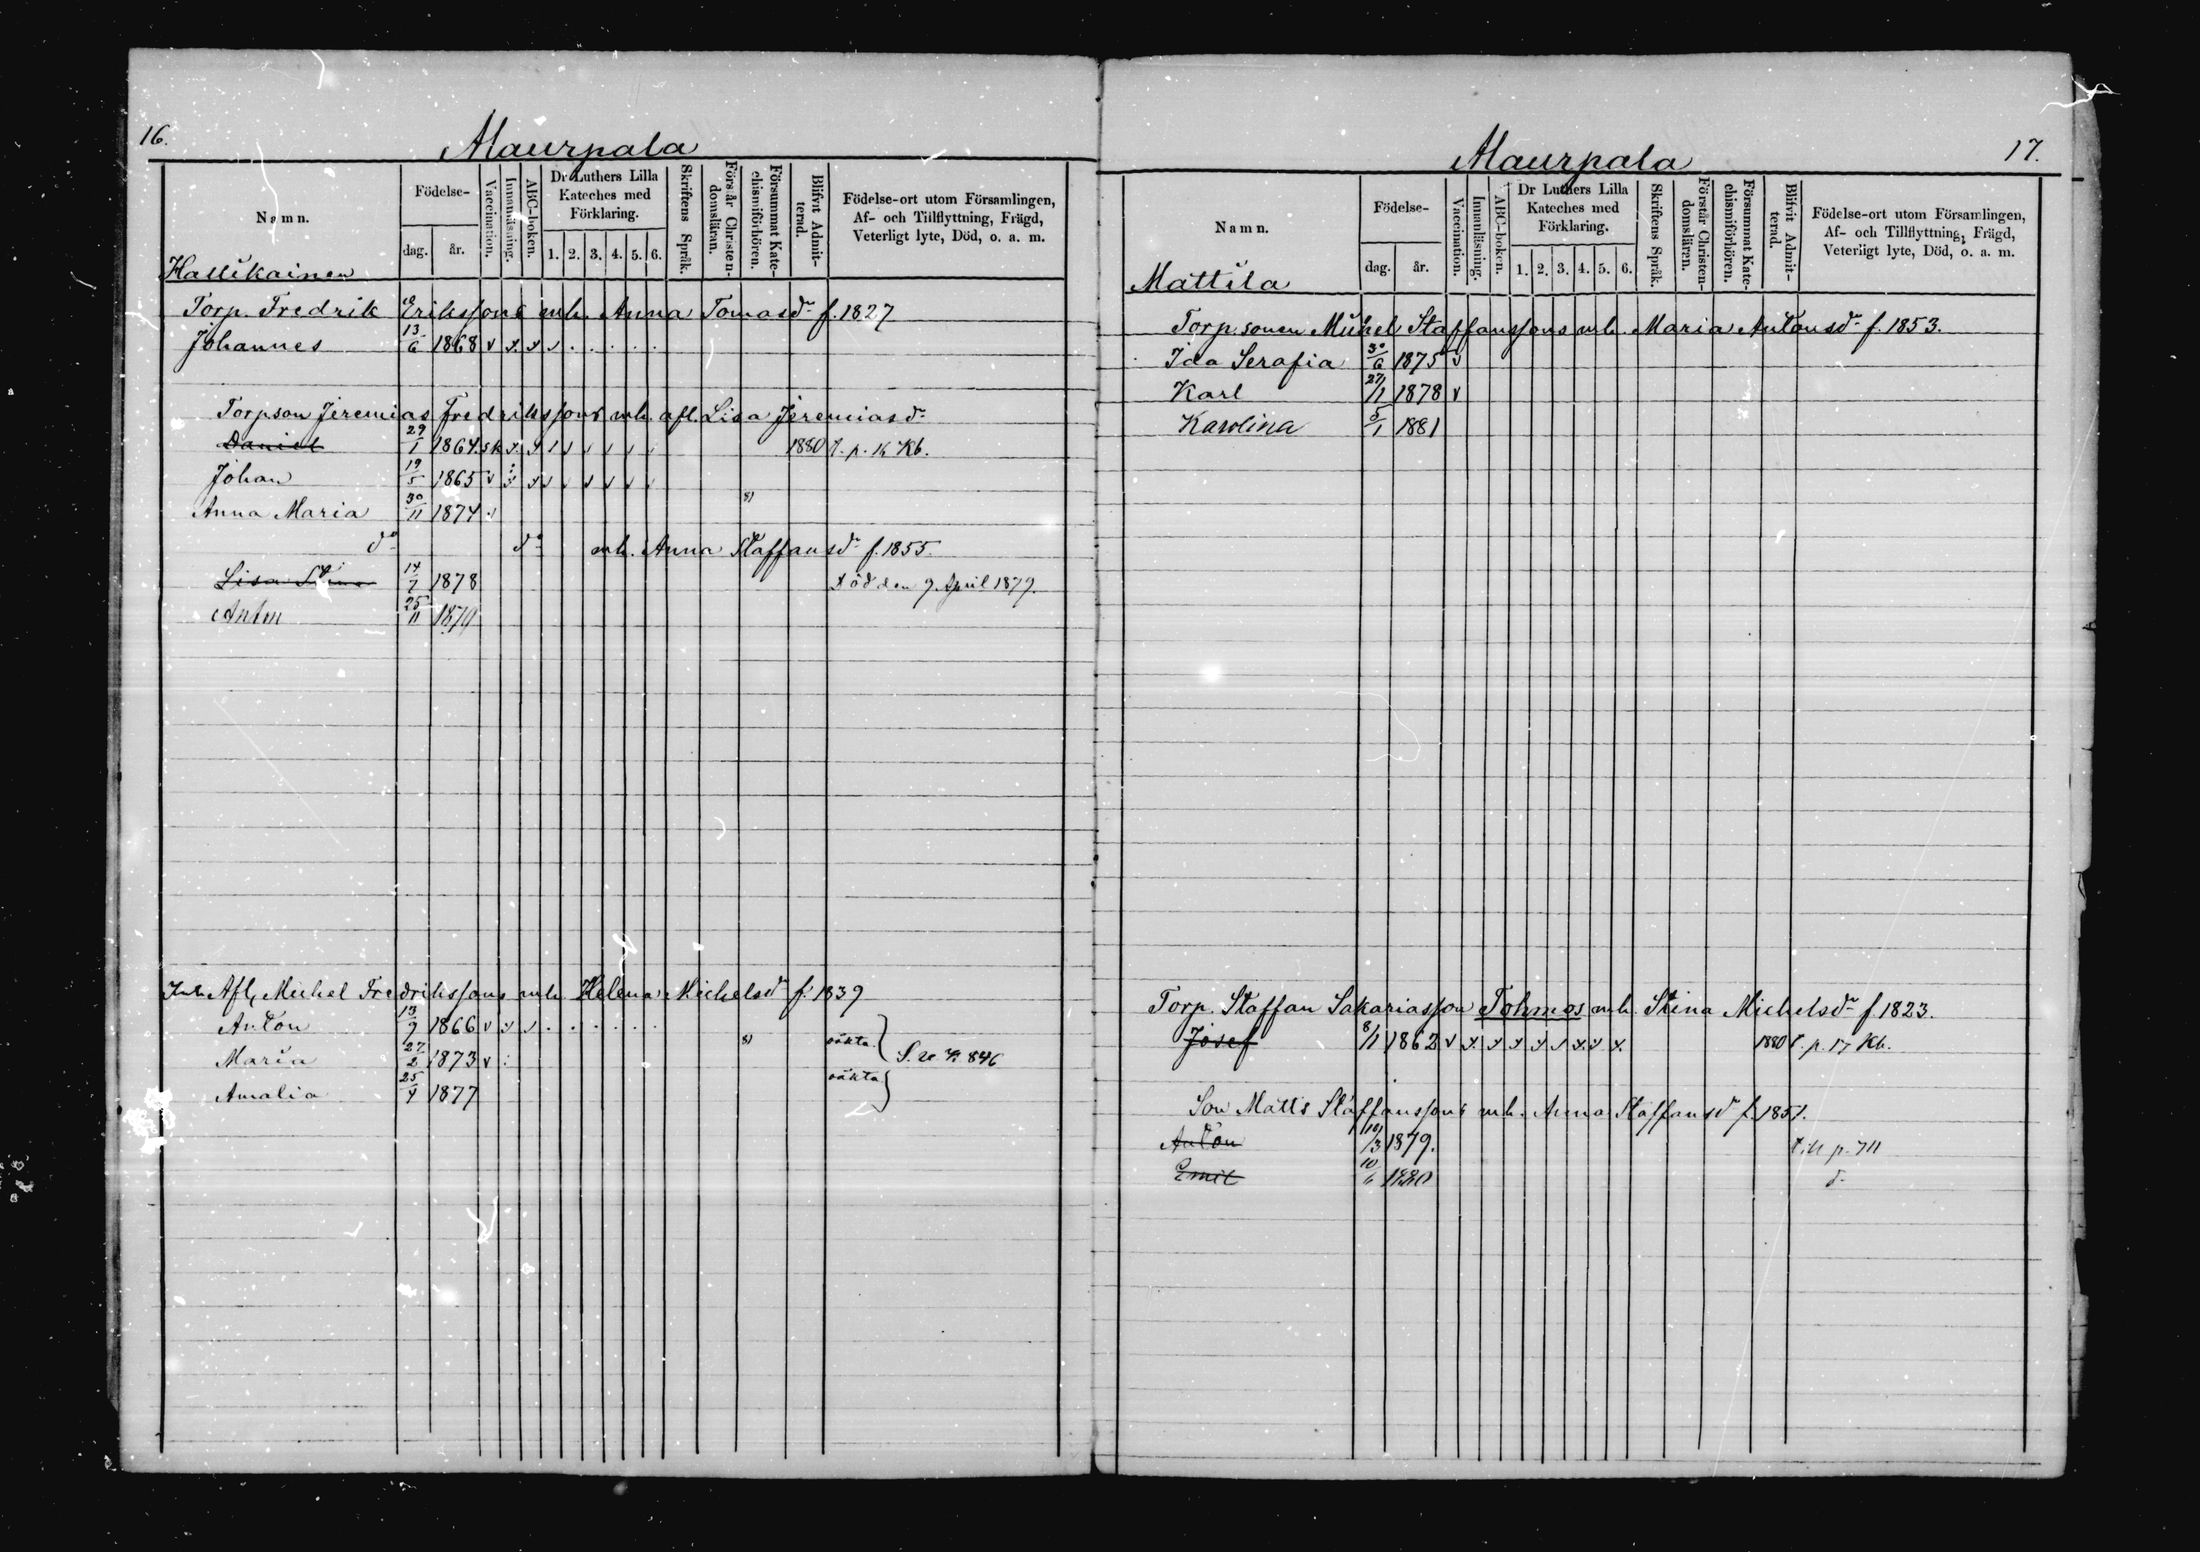 16.
Maurpala
Namn.
Födelse-
dag.
år.
Vaccination.
Innanläsning.
ABC-boken.
Dr Luthers Lilla
Kateches med
Förklaring.
1. 2. 3. 4. 5. 6.
Skriftens Språk.
Förstår Christen-
domsläran.
Försummat Kate-
chismiförhören.
Blifvit Admit-
terad.
Födelse-ort utom Församlingen,
Af- och Tillflyttning, Frägd,
Veterligt lyte, Död, o. a. m.
Hallikainen
Torp. Fredrik Erikssons enk. Anna Tomasdr f. 1827
Johannes 13/6 1868 v
Torpson Jeremias Fredrikssons mh. afl. Lisa Jeremiasdr
Daniel 29/1 1864 sk 1880 T. p. 16 Kb.
Johan 19/5 1865 v
Anna Maria 30/11 1874 v 81
do do mh. Anna Staffansdr f. 1855.
Lisa Stina 14/7 1878 Död den 9 April 1879.
Anton 25/11 1879
Inh. Afl. Michel Fredrikssons enk. Helena Michelsdr f. 1839
Anton 13/9 1866 v
Maria 27/2 1873 v 81 oäkta S. 846
Amalia 25/4 1877 oäkta
Maurpala
17.
Namn.
Födelse-
dag.
år.
Vaccination.
Innanläsning.
ABC-boken.
Dr Luthers Lilla
Kateches med
Förklaring.
1. 2. 3. 4. 5. 6.
Skriftens Språk.
Förstår Christen-
domslären.
Försummat Kate-
chismiförhören.
Blifvit Admit-
terad.
Födelse-ort utom Församlingen,
Af- och Tillflyttning, Frägd,
Veterligt lyte, Död, o. a. m.
Mattila
Torp. sonen Michel Staffanssons mh. Maria Antonsdr f. 1853.
Ida Serafia 30/6 1875 v
Karl 27/1 1878 v
Karolina 5/1 1881
Torp. Staffan Sakariasson Tohmos mh. Stina Michelsdr f. 1823.
Josef 8/1 1862 v 1880 T. p. 17 Kb.
Son Matts Staffanssons mh. Anna Staffansdr f. 1851.
Anton 19/3 1879. till p. 711
Emil 10/6 1880 d-